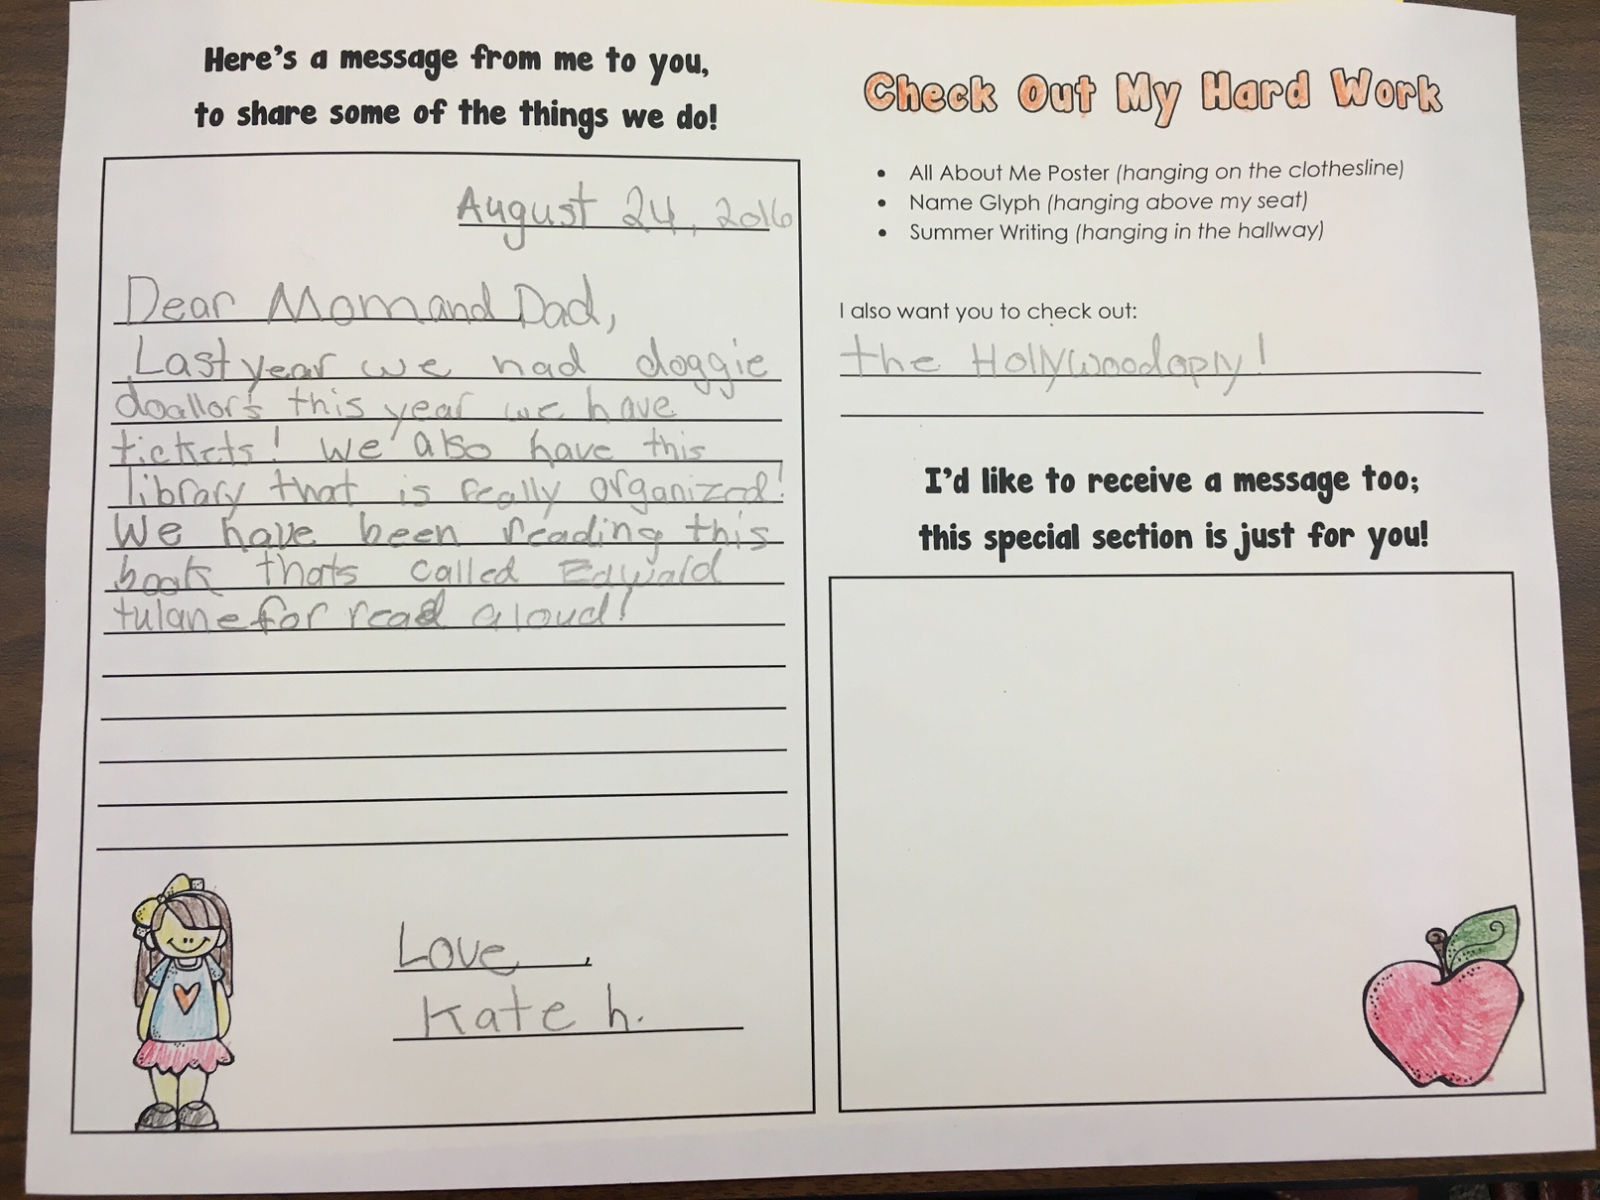 Here's a message from me to you,
to share some of the things we do!
August 24, 2016
Dear Mom and Dad,
Last year we had doggie
doallor's this year we have
tickets! We also have this
library that is really organized!
We have been reading this
book thats called Edwald
tulane for read aloud!
Love,
Kate h.
Check Out My Hard Work
• All About Me Poster (hanging on the clothesline)
• Name Glyph (hanging above my seat)
• Summer Writing (hanging in the hallway)
I also want you to check out:
the Hollywoodoply!
I'd like to receive a message too;
this special section is just for you!